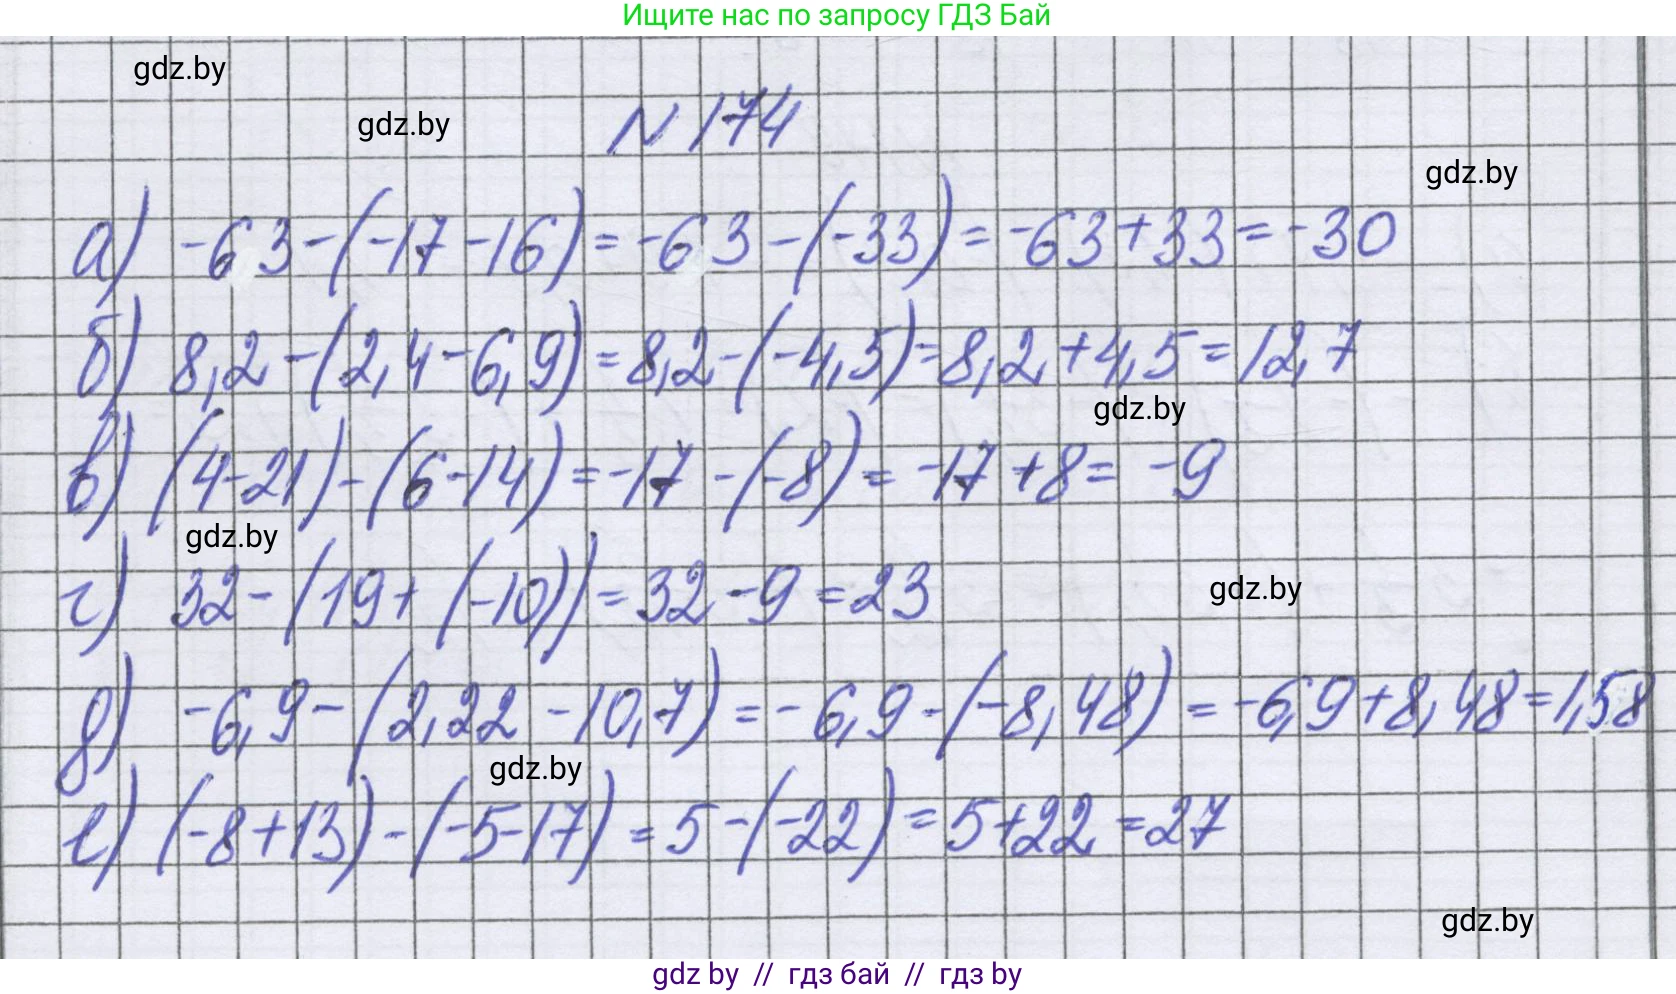 Ищите нас по запросу ГДЗ Бай
gdz.by
gdz.by
N 174
gdz.by
а) -63-(-17-16)=-63-(-33)=-63+33=-30
б) 8,2-(2,4-6,9)=8,2-(-4,5)=8,2+4,5=12,7
gdz.by
в) (4-21)-(6-14)=-17-(-8)=-17+8=-9
gdz.by
г) 32-(19+(-10))=32-9=23
gdz.by
д) -6,9-(2,22-10,7)=-6,9-(-8,48)=-6,9+8,48=1,58
gdz.by
е) (-8+13)-(-5-17)=5-(-22)=5+22=27
gdz.by
gdz by // гдз бай // гдз by